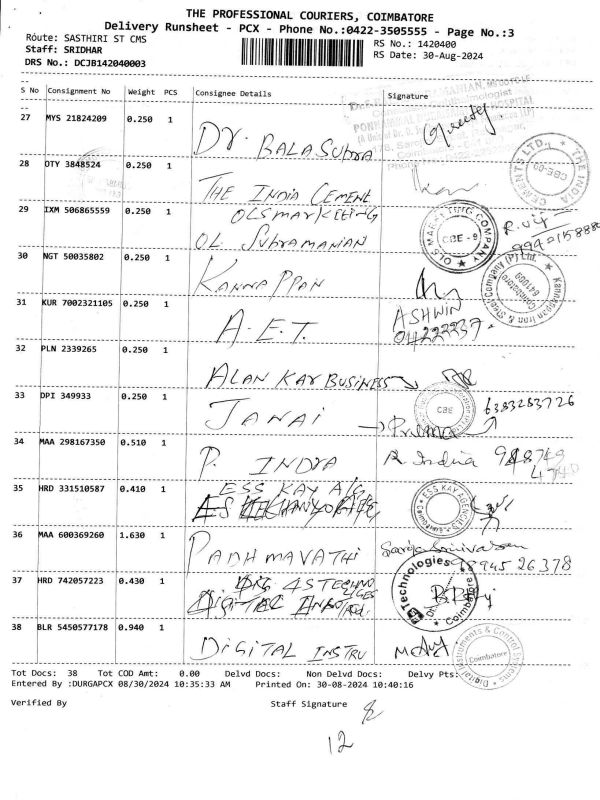 THE PROFESSIONAL COURIERS, COIMBATORE
Delivery Runsheet - PCX - Phone No.:0422-3505555 - Page No.:3
Route: SASTHIRI ST CMS
RS No.: 1420400
Staff: SRIDHAR
RS Date: 30-Aug-2024
DRS No.: DCJB142040003
S No Consignment No Weight PCS Consignee Details Signature
27 MYS 21824209 0.250 1
DR. BALASUBRA
28 OTY 3848524 0.250 1
THE INDIA CEMENT
29 IXM 506865559 0.250 1
OLSMARKETING
OL SUBRAMANIAN
30 NGT 50035802 0.250 1
KANNAPPAN
31 KUR 7002321105 0.250 1
A.E.T.
ASHWIN
32 PLN 2339265 0.250 1
ALAN KAY BUSINESS
33 DPI 349933 0.250 1
JANAI
Prema
6383283726
34 MAA 298167350 0.510 1
P. INDRA
35 HRD 331510587 0.410 1
ESS KAY A/G
36 MAA 600369260 1.630 1
PADHMAVATHI
37 HRD 742057223 0.430 1
Technologies
Coimbatore
38 BLR 5450577178 0.940 1
DIGITAL INSTRU
Digital Instruments & Control Systems
Coimbatore
Tot Docs: 38 Tot COD Amt: 0.00 Delvd Docs: Non Delvd Docs: Delvy Pts:
Entered By :DURGAPCX 08/30/2024 10:35:33 AM Printed On: 30-08-2024 10:40:16
Verified By Staff Signature
12